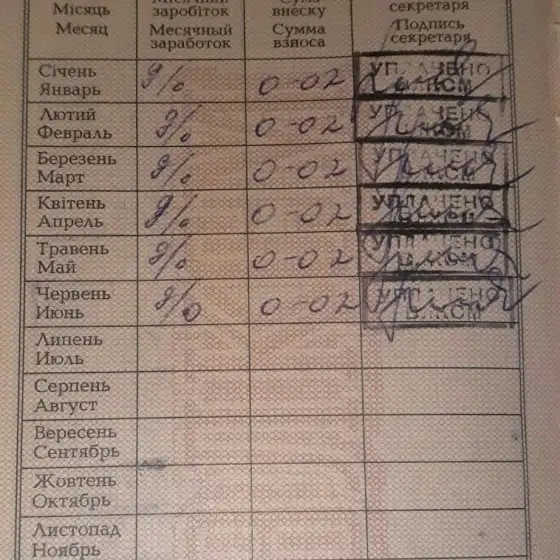 Місяць
Месяц
Місячний
заробіток
Месячный
заработок
Сума
внеску
Сумма
взноса
секретаря
Подпись
секретаря
Січень
Январь
0-02
УПЛАЧЕНО
ВЛКСМ
Лютий
Февраль
0-02
УПЛАЧЕНО
ВЛКСМ
Березень
Март
0-02
УПЛАЧЕНО
ВЛКСМ
Квітень
Апрель
0-02
УПЛАЧЕНО
ВЛКСМ
Травень
Май
0-02
УПЛАЧЕНО
ВЛКСМ
Червень
Июнь
0-02
УПЛАЧЕНО
ВЛКСМ
Липень
Июль
Серпень
Август
Вересень
Сентябрь
Жовтень
Октябрь
Листопад
Ноябрь